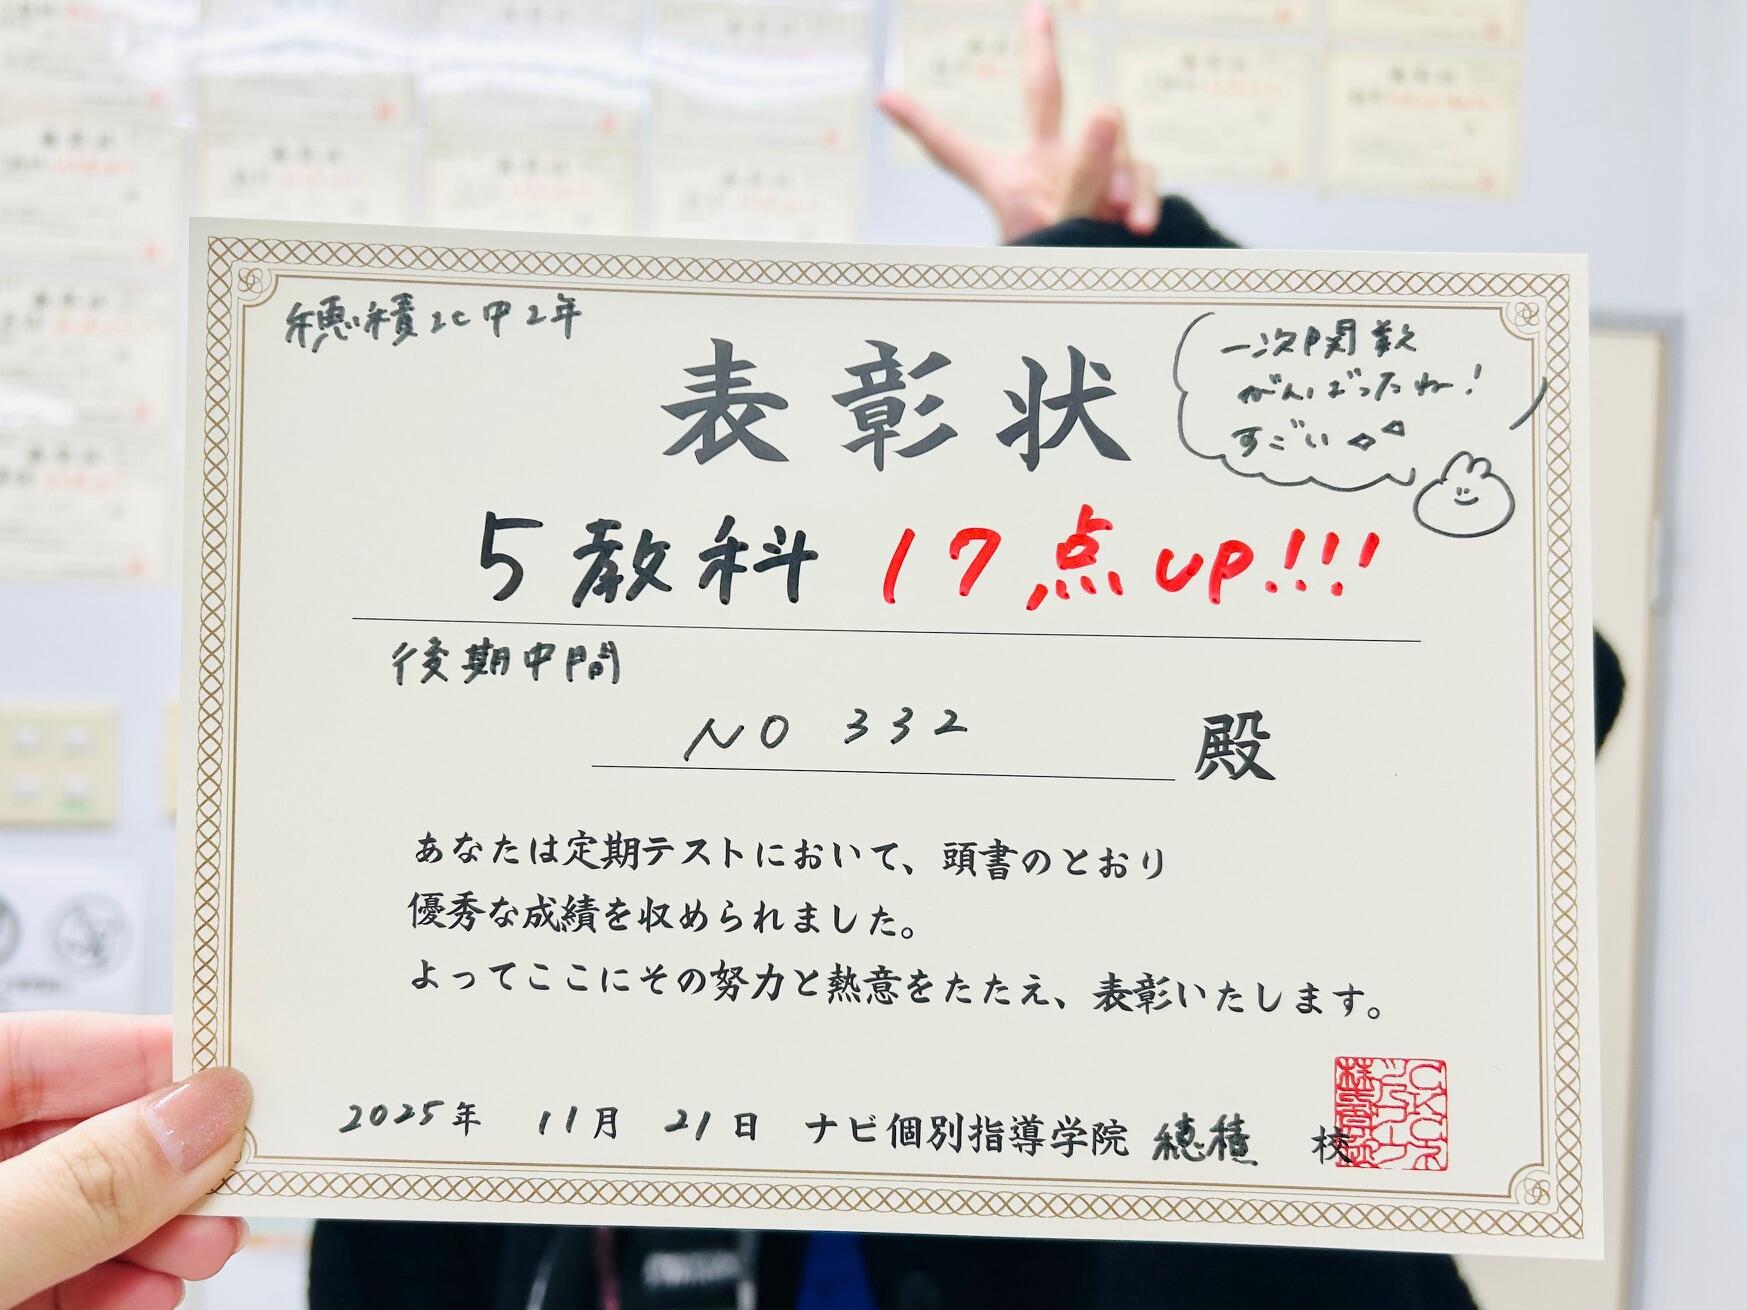 穂積北中2年
表彰状
一次関数
がんばったね!
すごい
5教科 17点up!!!
後期中間
NO 332 殿
あなたは定期テストにおいて、頭書のとおり
優秀な成績を収められました。
よってここにその努力と熱意をたたえ、表彰いたします。
2025年 11月 21日 ナビ個別指導学院 穂積 校